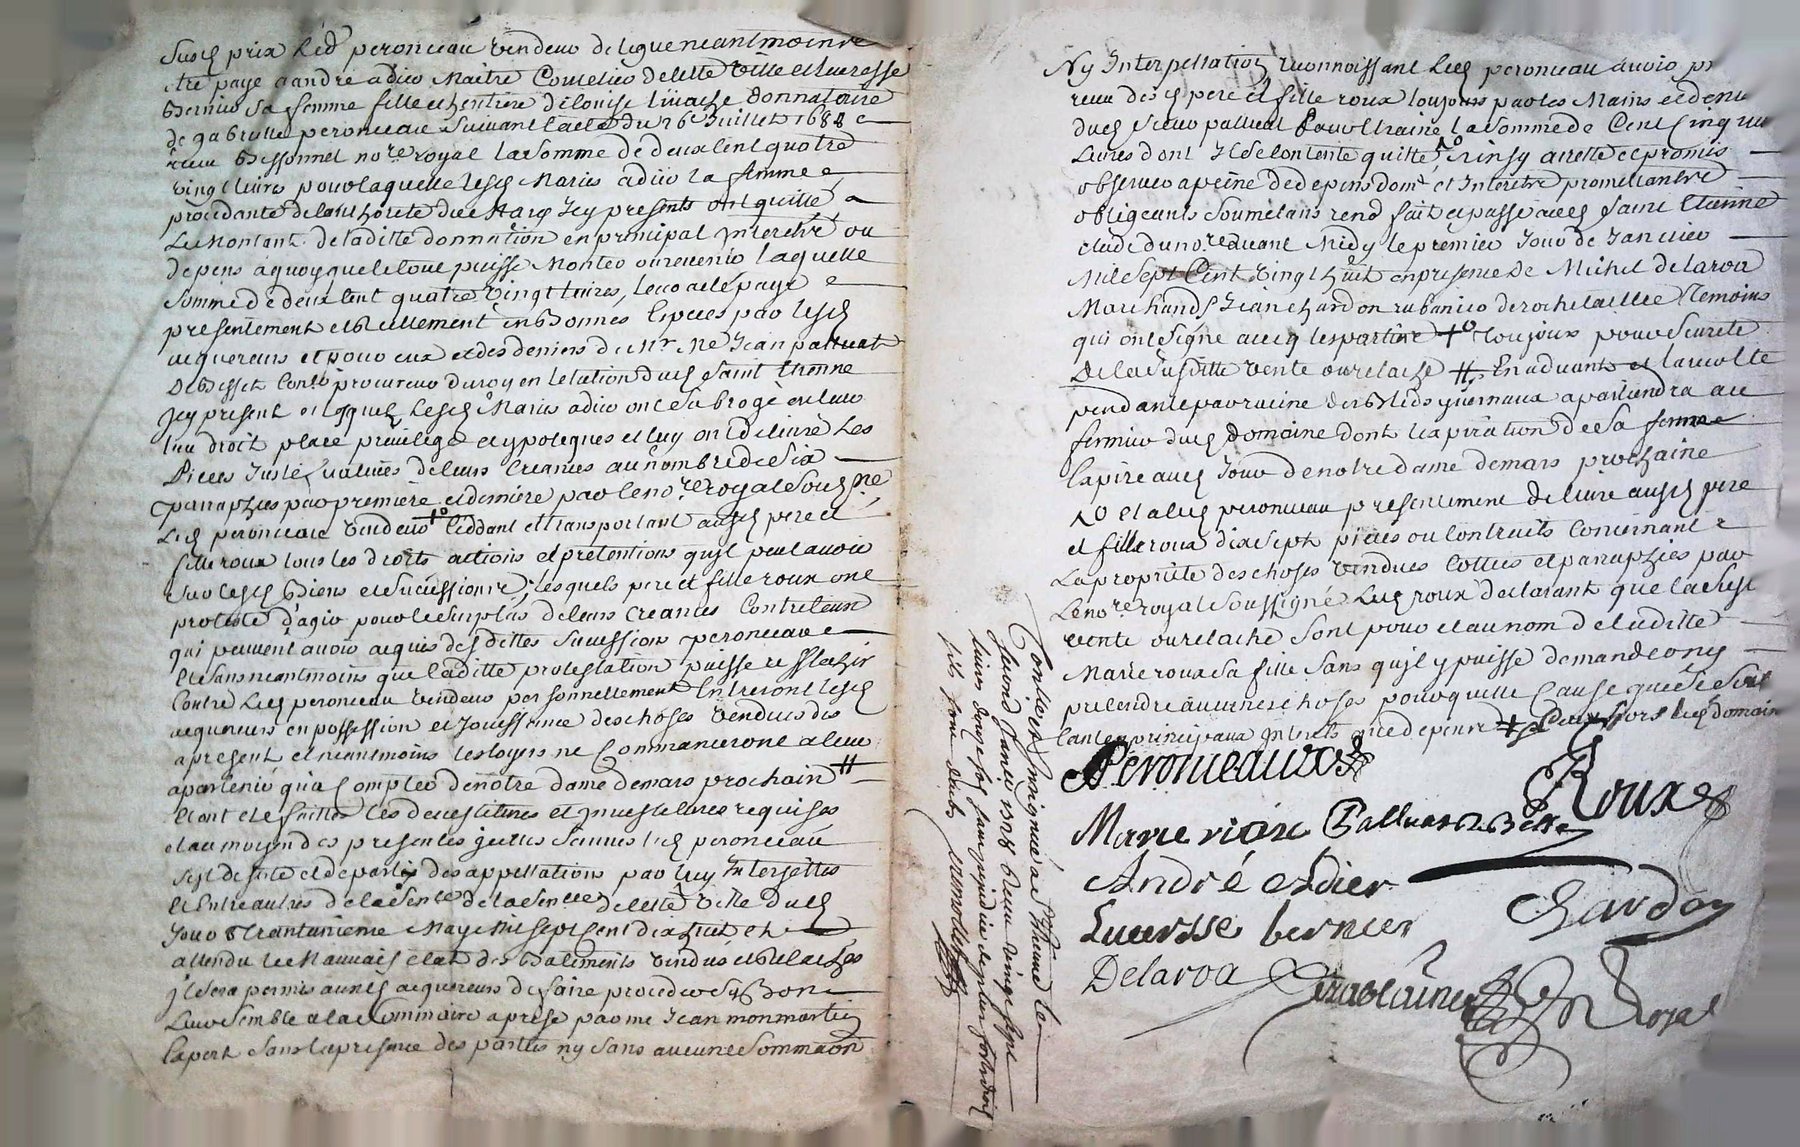 Susd prix led peronceau vendeur delegue neantmoins
etre payé a andré adier Maitre Coutelier de cette ville et lucresse
bernier sa femme fille et heritiere de louise donnatoire
de gabrielle peronceau suivant l'acte du 26e Juillet 1688
receu Bessonnet nore royal la somme de deux cent quatre
vingt livres pour laquelle lesd Maries adier la femme
procedante de l'authorité dud Mary Icy presents ont quitté
le Montant de laditte donnation en principal Interetz ou
depens a quoy que le tout puisse Monter ou revenir laquelle
somme de deux cent quatre vingt livres, leur a eté payé
presentement et reellement en Bonnes Especes par lesd
acquereurs et pour eux et des deniers de Mr Me Jean palluat
De Besset Conser procureur du roy en l'election dud Saint Etienne
Icy present auquel lesd Maries adier ont subrogé en leur
lieu droit place privilege et ypoteques et luy ont delivré les
Pieces Justificatives de leurs Creances au nombre de six
paraphées par premiere et derniere par le nore royal soussigné
Led peronceau vendeur +o Ceddant et transportant auxd pere et
fille roux tous les droits actions et pretentions qu'il peut avoir
sur lesd Biens et successions, lesquels pere et fille roux ont
protesté d'agir pour le surplus de leurs Creances Contre ceux
qui peuvent avoir acquis desdittes succession peronceau
et sans neantmoins que laditte protestation puisse reflechir
Contre Led peronceau vendeur personnellement Entreront lesd
acquereurs en possession et Jouissance des choses vendues des
apresent et neantmoins les loyers ne Commanceront a leur
apartenir qu'a Compter de notre dame de mars prochain #
et ont eté faittes les devestitures et Investitures requises
et au moyen des presentes led peronceau
s'est desisté et departy des appellations par luy Interjettes
et Entre autres de la Sentce de la Senechee de cette ville dud
Jour trantunieme May Mil sept Cent dix huit et
attendu le Mauvais etat des Batiments vendus et relachés
il sera permis auxd acquereurs de faire proceder sy Bon
Leur semble a la Sommaire apreste par me Jean monmartin
Expert sans la presence des parties ny sans aucune sommaon
Ny Interpellation reconnoissant Led peronceau avoir
receu desd pere et fille roux toujours par les Mains et deniers
dud sieur palluat la somme de Cent Cinq
Livres dont Il se contente quitte 10 Ainsy arretté et promis
observer a peine de depens domes et Interetz promettants
obligeants soumetans renonceants fait et passé aud Saint Etienne
etude du nore avant Midy le premier Jour de Janvier
Mil sept Cent vingt huit en presence de Michel delaroa
Marchand & Jean chardon rubanier de rochetaillée temoins
qui ont signé avecq les parties +o toujoux pour seureté
De la susditte vente ou relache # En aduants et la recolte
pendante par racine des Bleds yvernaux apartiendra au
fermier dud domaine dont l'expiration de sa ferme
Expire aud Jour de notre dame de mars prochaine
10 et a led peronceau presentement delivré auxd pere
et fille roux dix sept pieces ou Contraits Concernant
la proprieté des choses vendues Cottées et paraphées par
le nore royal soussigné Led roux declarant que la susd
vente ou relache sont pour et au nom de laditte
Marie roux sa fille sans qu'il y puisse demander ny
pretendre aucunes choses pour quelle Cause que ce soit
tant en principaux Interets que depens
Peronceau
Roux
Marie rioux Palluat De Besset
André Adier
Chardon
Lucresse bernier
Delaroa
Royal
Controllé et Insinué a St Etienne le
second Janvier 1728 Receu vingt sept
livres douze sols sans prejudice de plus fort droit